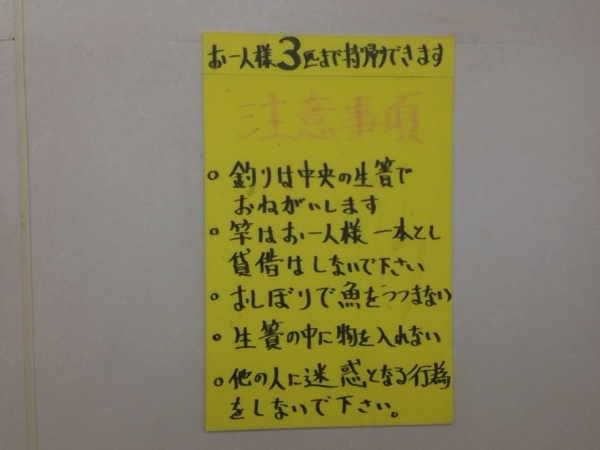 お一人様3匹まで持帰りできます
注意事項
○ 釣りは中央の生簀で
おねがいします
○ 竿はお一人様一本とし
貸借はしないで下さい
○ おしぼりで魚をつつまない
○ 生簀の中に物を入れない
○ 他の人に迷惑となる行為
をしないで下さい。